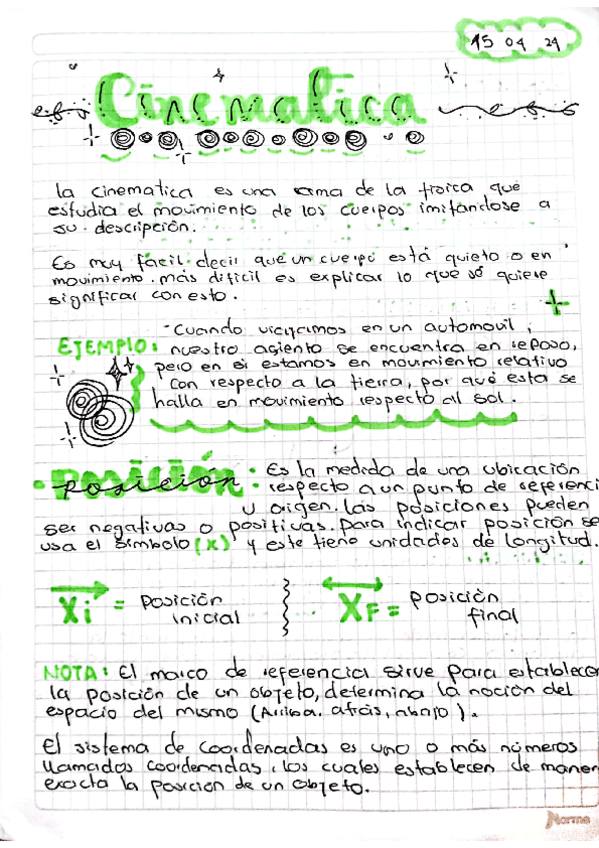 15 04 24
Cinematica
la cinematica es una rama de la fisica que
estudia el movimiento de los cuerpos limitandose a
su descripción.
Es muy facil decir que un cuerpo está quieto o en
movimiento. más dificil es explicar lo que se quiere
significar con esto.
EJEMPLO:
Cuando viajamos en un automovil,
nuestro asiento se encuentra en reposo,
pero en si estamos en movimiento relativo
con respecto a la tierra, por qué esta se
halla en movimiento respecto al sol.
posición: Es la medida de una ubicación
respecto a un punto de referenci
u origen. las posiciones pueden
ser negativas o positivas. para indicar posición se
usa el simbolo (x) y este tiene unidades de longitud.
Xi = posición inicial
XF = posición final
NOTA: El marco de referencia sirve para establecer
la posición de un objeto, determina la noción del
espacio del mismo (Arriba, atrás, abajo).
el sistema de coordenadas es uno o más números
llamados coordenadas, los cuales establecen de maner
exacta la posición de un objeto.
Norma